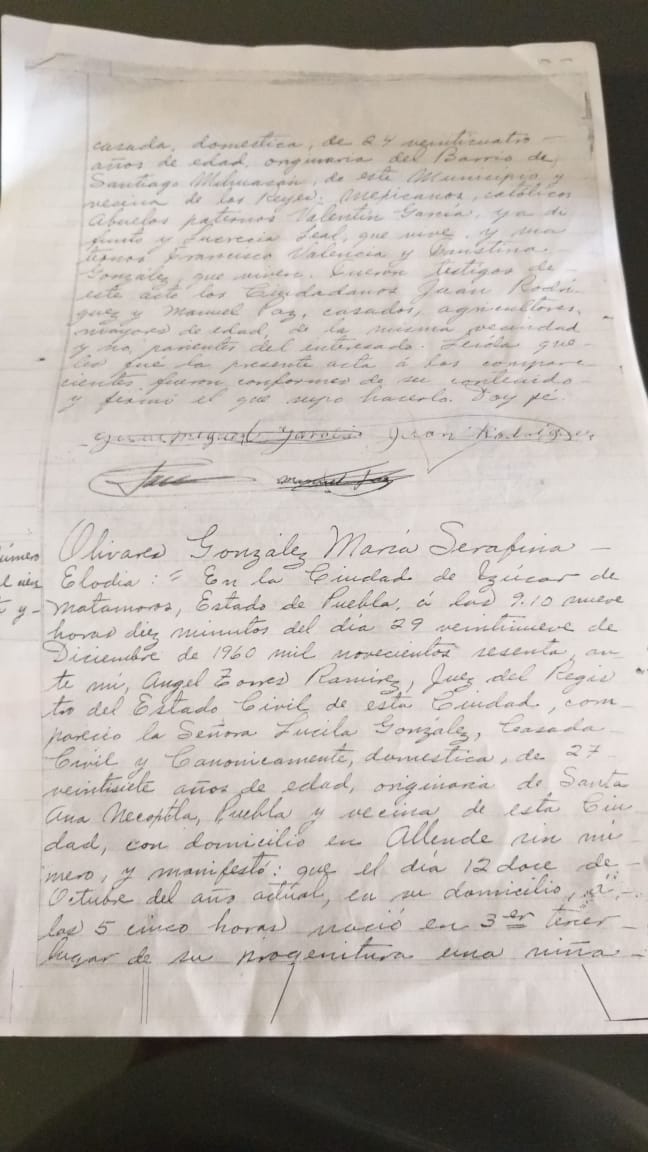 casada, domestica, de 24 veinticuatro
años de edad, originaria del Barrio de
Santiago Mihuacán, de este Municipio y
vecina de los Reyes. Mexicanos, católicos
Abuelos paternos Valentin García, ya di
funto y Lucrecia Leal, que vive, y ma
ternos Francisco Valencia y Faustina
González, que viven. Fueron testigos de
este acto los Ciudadanos Juan Rodrí
guez y Manuel Paz, casados, agricultores,
mayores de edad, de la misma vecindad
y no parientes del interesado. Leída que
les fué la presente acta á los compare
cientes, fueron conformes de su contenido
y firmó el que supo hacerlo. Doy fé.
García Juan Rodríguez
Manuel Paz
Olivares González María Serafina
Elodia: = En la Ciudad de Izúcar de
Matamoros, Estado de Puebla, á las 9.10 nueve
horas diez minutos del día 29 veintinueve de
Diciembre de 1960 mil novecientos sesenta, an
te mi, Angel Torres Ramirez, Juez del Regis
tro del Estado Civil de esta Ciudad, com
pareció la Señora Lucila González, Casada
Civil y Canonicamente, domestica, de 27
veintisiete años de edad, originaria de Santa
Ana Necoxtla, Puebla y vecina de esta Ciu
dad, con domicilio en Allende sin nú
mero, y manifestó: que el día 12 doce de
Octubre del año actual, en su domicilio, á
las 5 cinco horas nació en 3er tercer
lugar de su progenitura una niña